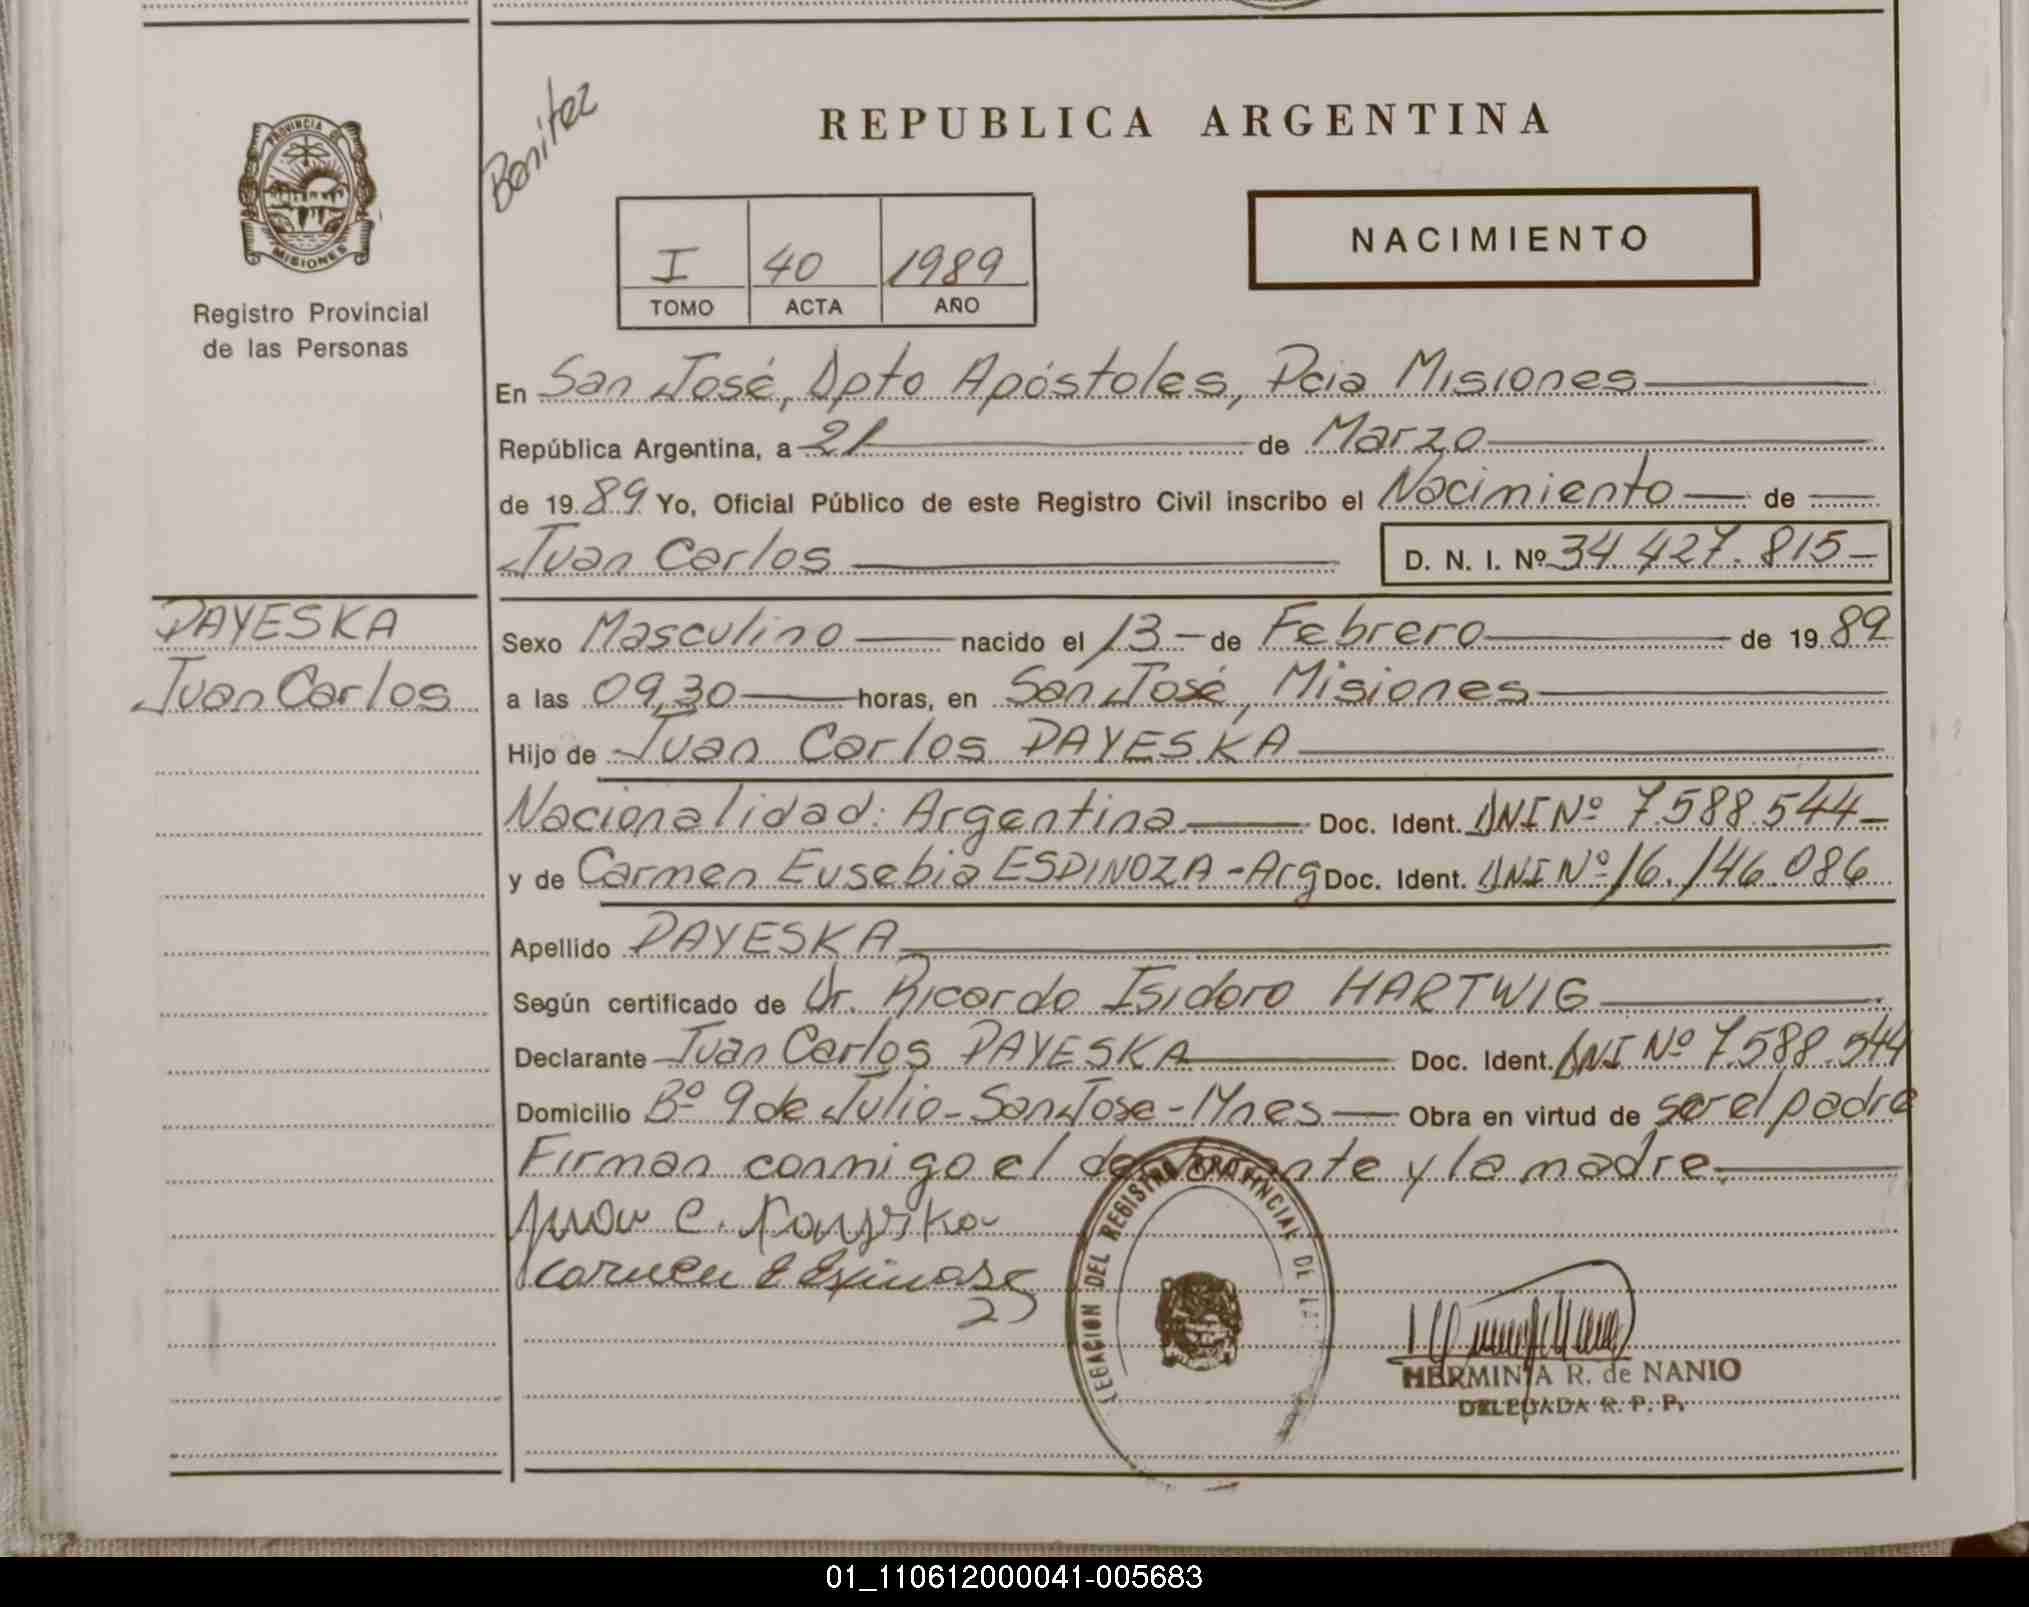 PROVINCIA DE
MISIONES
Registro Provincial
de las Personas
Benitez
REPUBLICA ARGENTINA
I 40 1989
TOMO ACTA AÑO
NACIMIENTO
En San José, Dpto Apóstoles, Pcia Misiones
República Argentina, a 21 de Marzo
de 1989 Yo, Oficial Público de este Registro Civil inscribo el Nacimiento de
Juan Carlos D. N. I. Nº 34.427.815
PAYESKA
Juan Carlos
Sexo Masculino nacido el 13 de Febrero de 1989
a las 09,30 horas, en San José, Misiones
Hijo de Juan Carlos PAYESKA
Nacionalidad: Argentina Doc. Ident. DNI Nº 7.588.544
y de Carmen Eusebia ESPINOZA - Arg Doc. Ident. DNI Nº 16.146.086
Apellido PAYESKA
Según certificado de Dr. Ricardo Isidoro HARTWIG
Declarante Juan Carlos PAYESKA Doc. Ident. DNI Nº 7.588.544
Domicilio Bº 9 de Julio - San Jose - Mnes Obra en virtud de ser el padre
Firman conmigo el declarante y la madre.
Juan C. Payeska
Carmen E Espinosa
LEGACION DEL REGISTRO PROVINCIAL DE LAS
HERMINIA R. de NANIO
DELEGADA R. P. P.
01_110612000041-005683